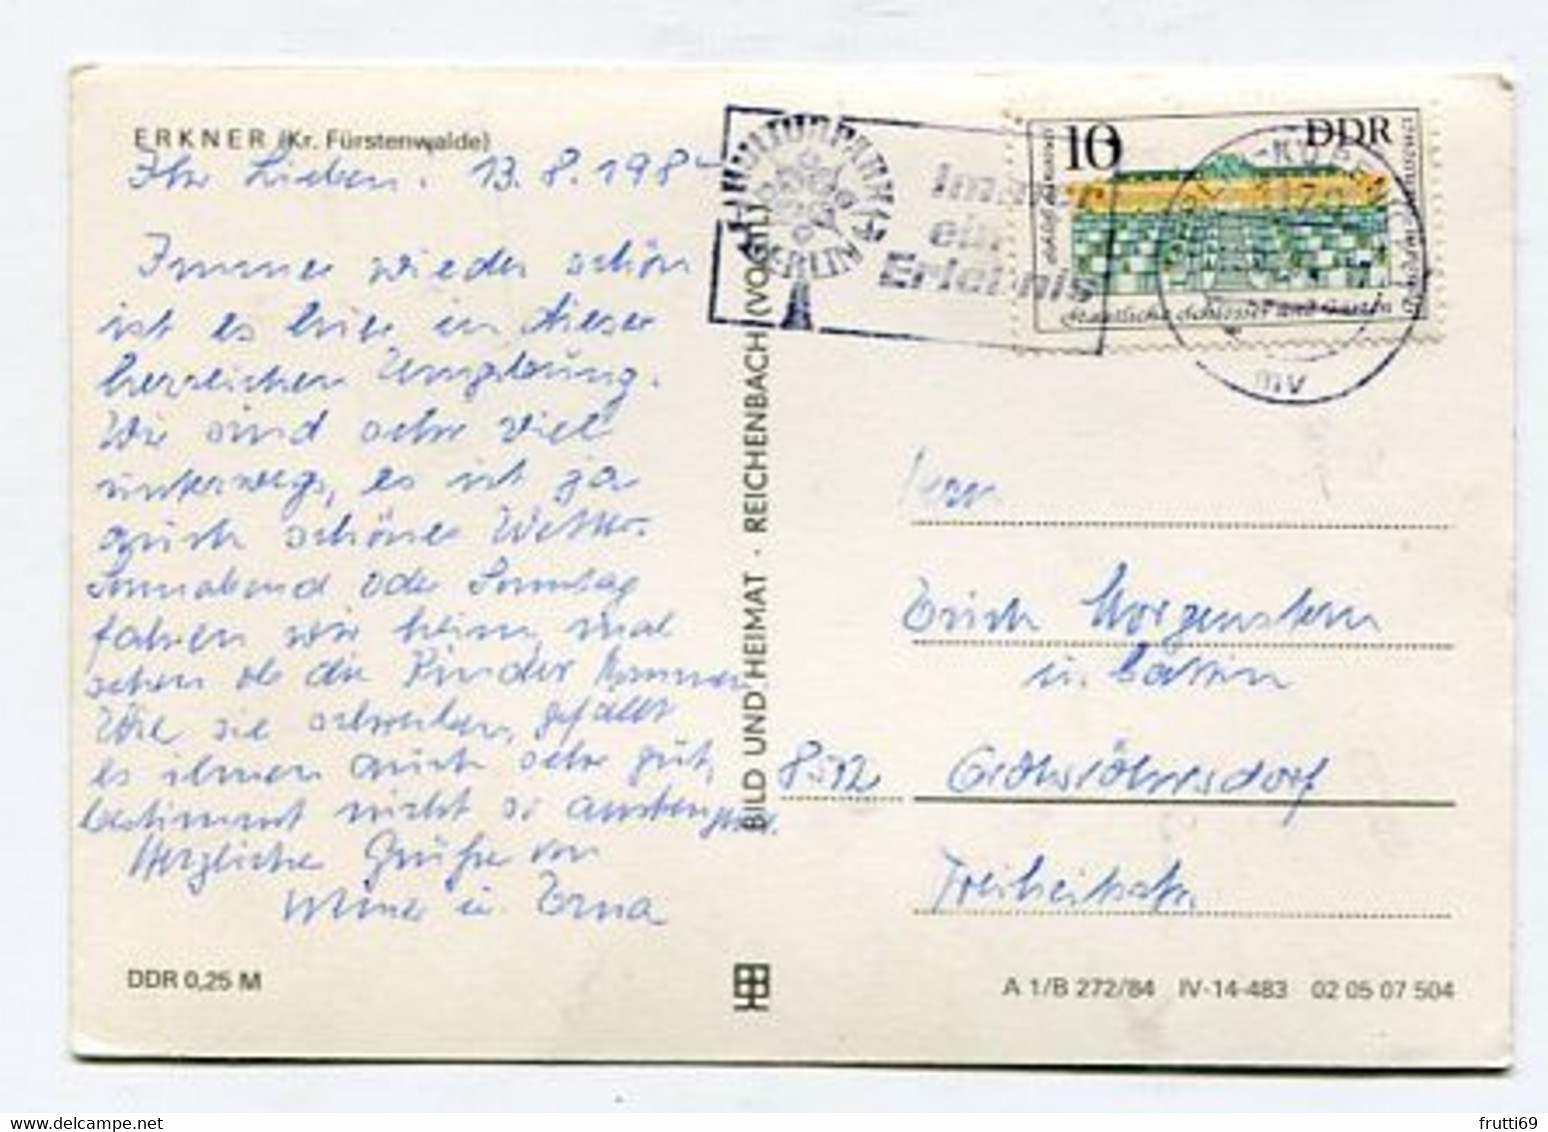 ERKNER (Kr. Fürstenwalde)
Ihr Lieben! 13.8.198
Immer wieder schön
ist es hier in dieser
herrlichen Umgebung.
Wir sind sehr viel
unterwegs, es ist ja
auch schönes Wetter.
Sonnabend oder Sonntag
fahren wir heim, mal
sehen ob die Kinder kommen
Wie sie schreiben, gefällt
es ihnen auch sehr gut,
bestimmt nicht so anstrengend.
Herzliche Grüße von
u. Erna
DDR 0,25 M
BILD UND HEIMAT · REICHENBACH (VOGTL)
KULTURPARK
BERLIN
Immer
ein
Erlebnis
10 DDR
Staatliche Schlösser und Gärten
mv
Herrn
Erich Morgenstern
u.
8512 Großröhrsdorf
Freiheitstr.
A 1/B 272/84 IV-14-483 02 05 07 504
frutti69